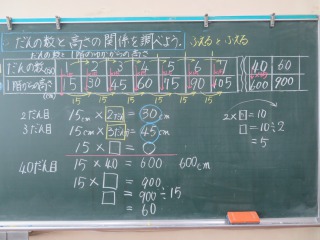 だんの数と高さの関係を調べよう。 ふえるとふえる
だんの数(だん) 1 2 3 4 5 6 7 40 60
1階からの高さ(cm) 15 30 45 60 75 90 105 600 900
15 15 15 15 15 15
2だん目 15cm × 2だん = 30cm
3だん目 15cm × 3だん = 45cm
15 × □ = ○
40だん目 15 × 40 = 600 600cm
15 × □ = 900
□ = 900÷15
= 60
2×□=10
□=10÷2
=5